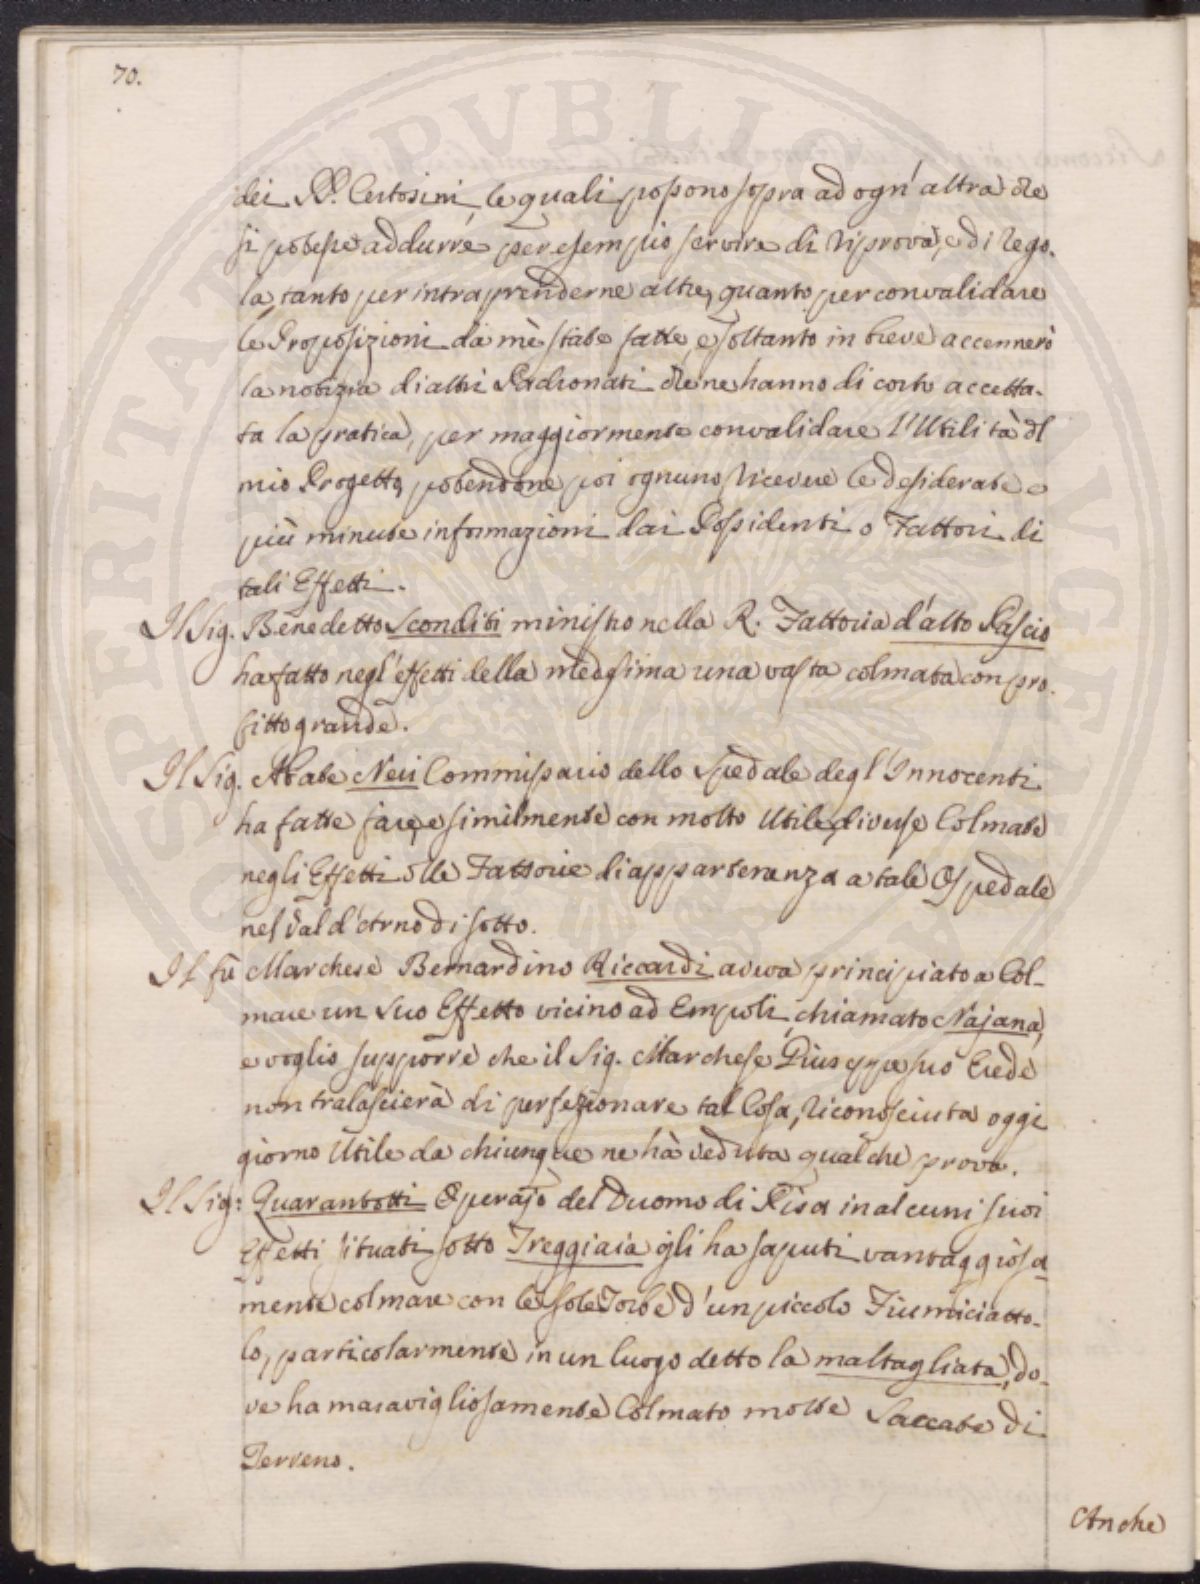 70.
dei PP. Certosini, le quali possono sopra ad ogn' altra che
si potesse addurre per esempio servire di riprova, e di rego-
la, tanto per intraprenderne altre, quanto per convalidare
le Proposizioni da mè state fatte, e soltanto in breve accennerò
la notizia di altri Padronati che ne hanno di certo accetta-
ta la pratica, per maggiormente convalidare l'Utilità del
mio Progetto, potendone poi ognuno ricevere le desiderate e
più minute informazioni dai Possidenti o Fattori di
tali Effetti.
Il Sig. Benedetto Sconditi ministro nella R. Fattoria d'alto Pascio
ha fatto negl' effetti della medesima una vasta colmata con pro-
fitto grande.
Il Sig. Abate Neri Commissario dello Spedale degl' Innocenti
ha fatte fare, e similmente con molto Utile, diverse Colmate
negli Effetti delle Fattorie di appartenenza a tale Ospedale
nel Val d'Arno di sotto.
Il fù Marchese Bernardino Riccardi aveva principiato a Col-
mare un suo Effetto vicino ad Empoli, chiamato Najana,
e voglio supporre che il Sig. Marchese Giuseppe suo Erede
non tralascierà di perfezionare tal Cosa, riconosciuta oggi
giorno Utile da chiunque ne hà veduta qualche prova.
Il Sig: Quarantotti Operajo del Duomo di Pisa in alcuni suoi
Effetti situati sotto Treggiaia gli ha saputi vantaggiosa-
mente colmare con le sole Torbe d'un piccolo Fiumiciatto-
lo, particolarmente in un luogo detto la maltagliata, do-
ve ha maravigliosamente Colmato molte Saccate di
Terreno.
Anche
SPERITATE PUBLICA AUGE